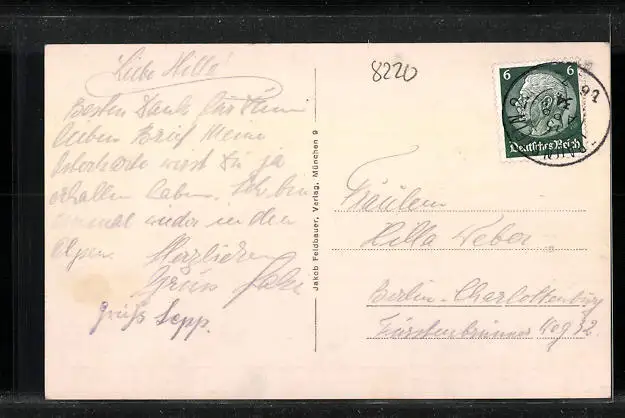 Liebe Hilla!
Besten Dank für Dein
lieben Brief Meine
Osterkarte wirst Du ja
erhalten haben. Ich bin
einmal wieder in den
Alpen. Herzlichen
Gruss
Gruß Sepp.
Jakob Feldbauer, Verlag, München 9
8220
6 6
Deutsches Reich
Fräulein
Hilla Weber
Berlin-Charlottenburg
Fürstenbrunner Weg 32.